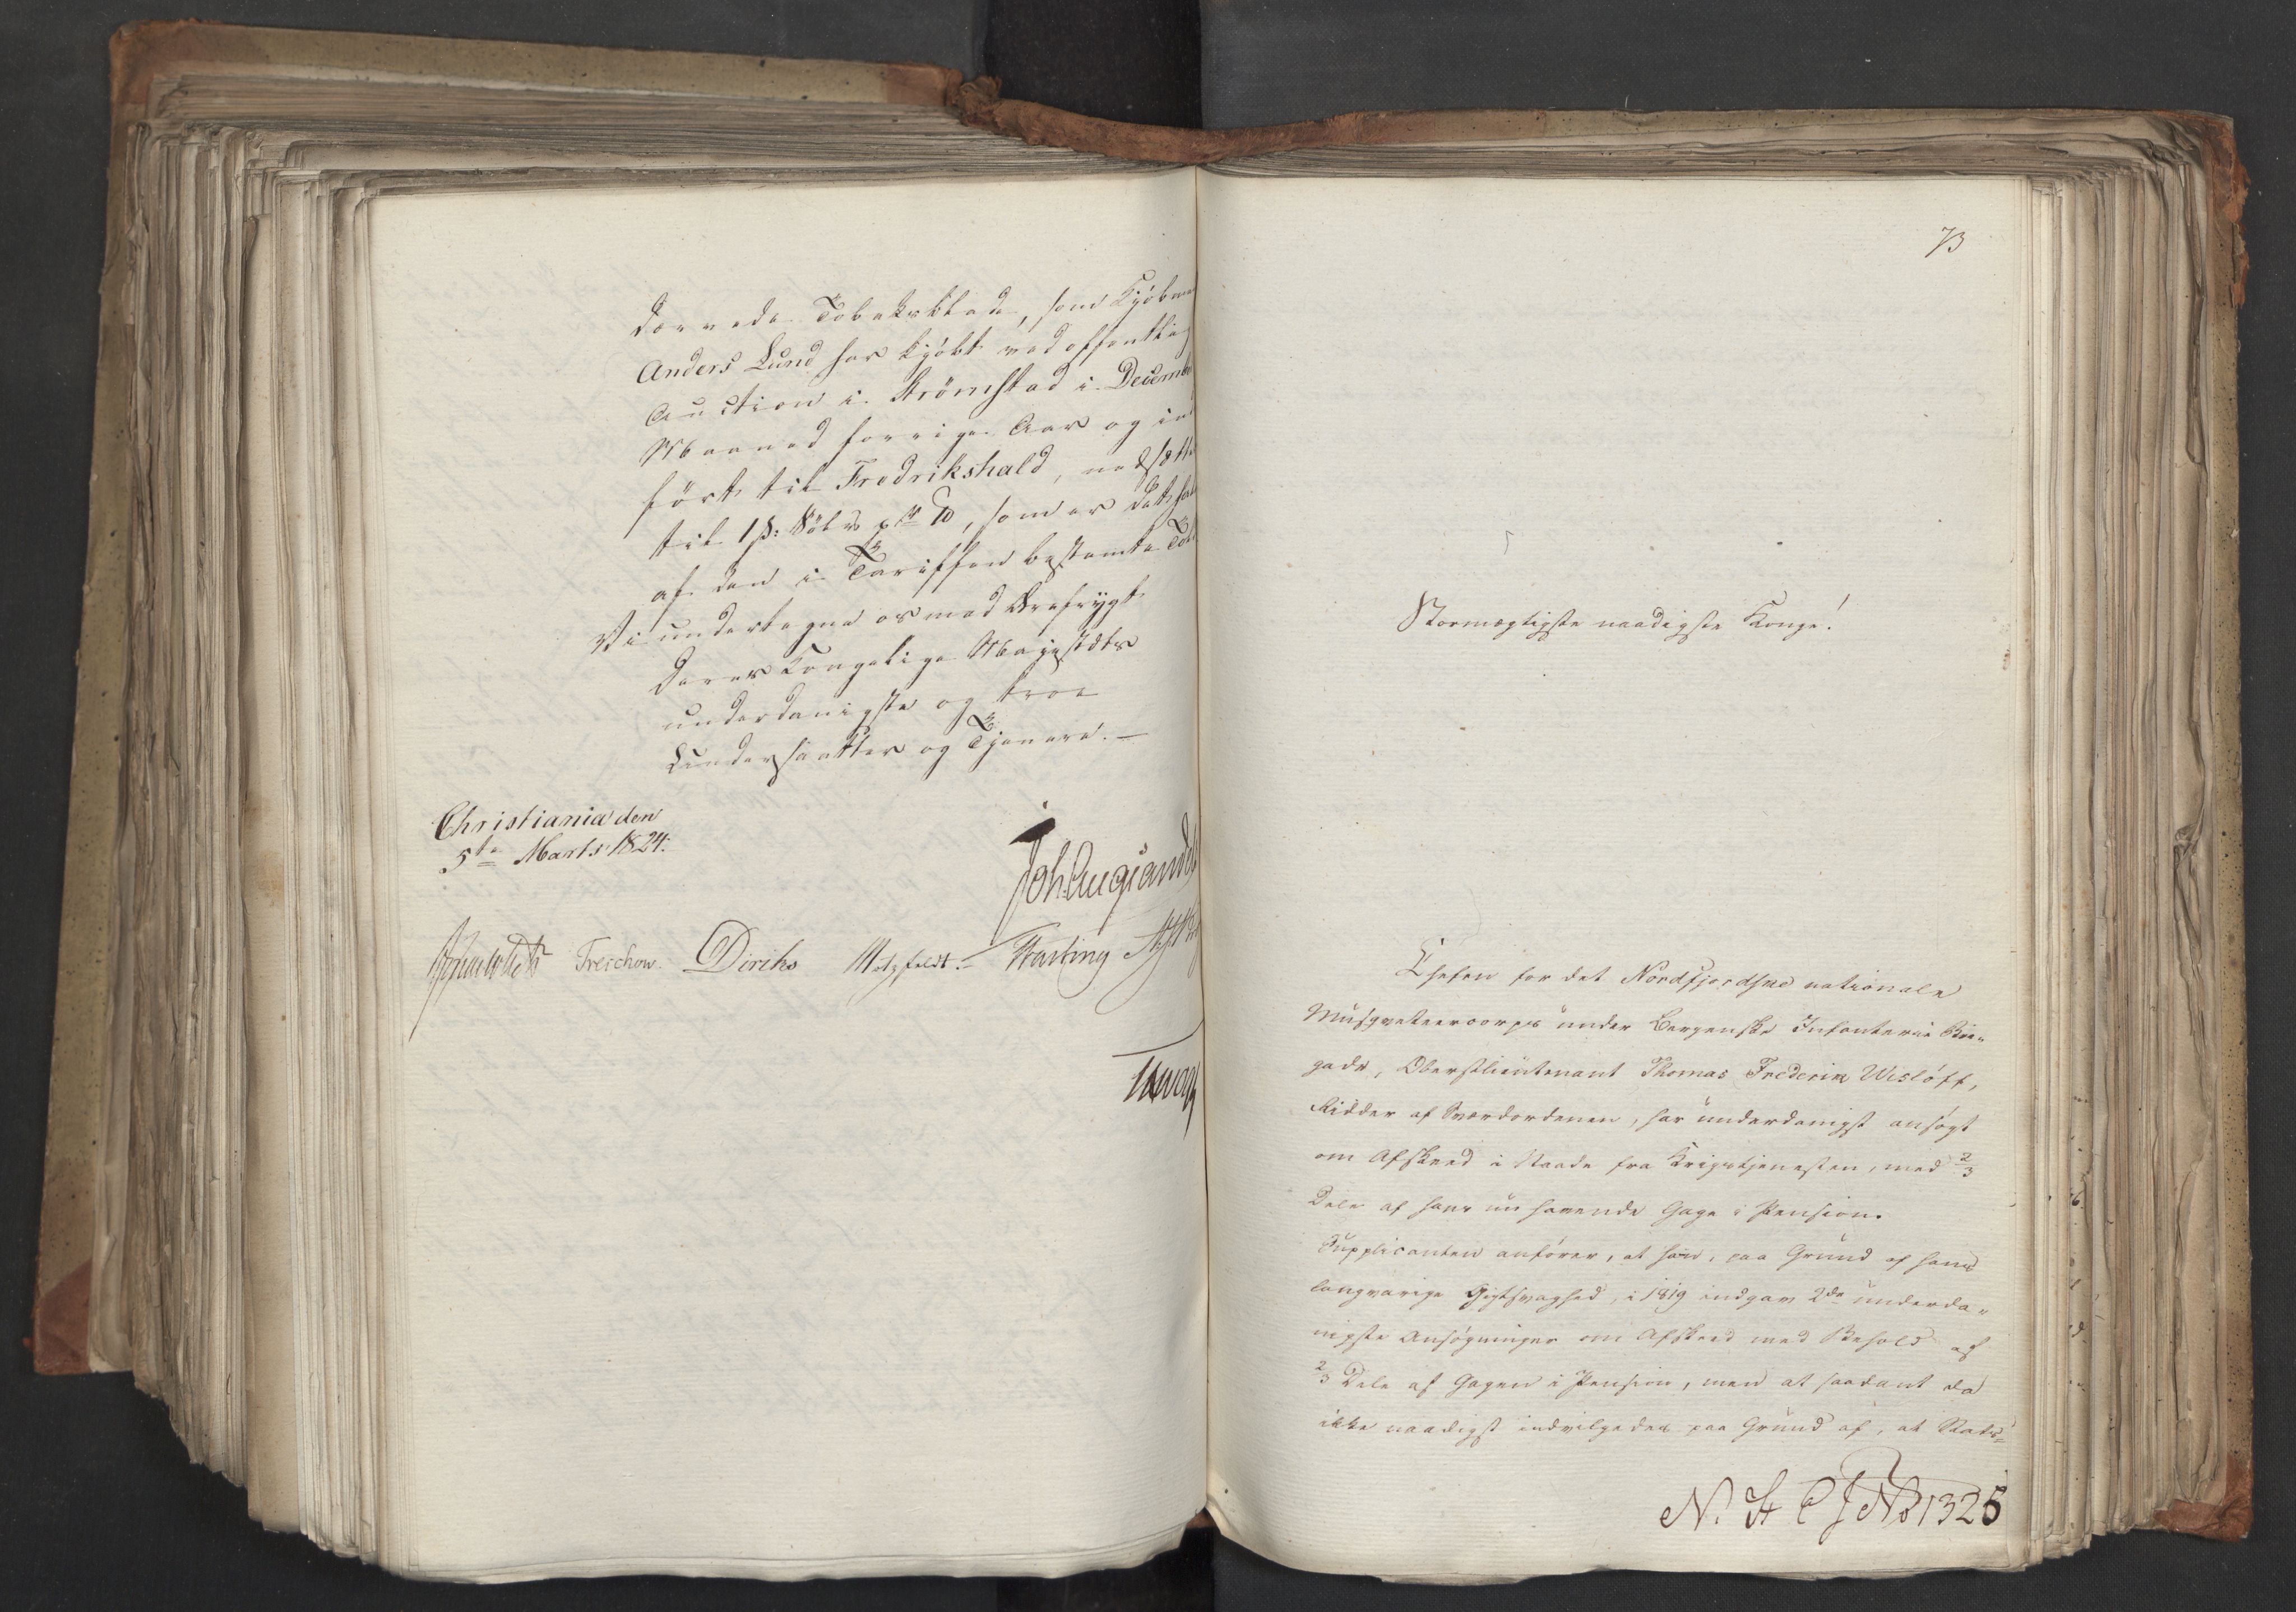 Danede Tobaksblade, som Kjøbm
Anders Lund har kjøbt ved offentlig
Auction i Strømstad i Decemb
Maaned forrige Aar og ind
ført til Fredrikshald, nedsætte
til 1 ß: Sølv pr ℔, som er det hal
af den i Tariffen bestemte Told
Vi undertegne os med Ærefrygt
Deres Kongelige Majestæts
underdanigste og troe
Undersaatter og Tjenere. —
Christiania den
5te Marts 1824.
Joh. Aug. Sandels
Treschow. Diriks Motzfeldt. Fasting
73
Stormægtigste naadigste Konge!
Chefen for det Nordfjordske nationale
Musqveteercorps under Bergenske Infanterie Bri„
gade, Oberstlieutenant Thomas Frederik Wisløff,
Ridder af Sværdordenen, har underdanigst ansøgt
om Afskeed i Naade fra Krigstjenesten, med 2/3
Dele af hans nu havende Gage i Pension.
Supplicanten anfører, at han, paa Grund af hans
langvarige Gigtsvaghed, i 1819 indgav 2de underda„
nigste Ansøgninger om Afskeed med Behold af
2/3 Dele af Gagen i Pension, men at saadant da
ikke naadigst indvilgedes paa Grund af, at Stats=
N. St C J No 1325